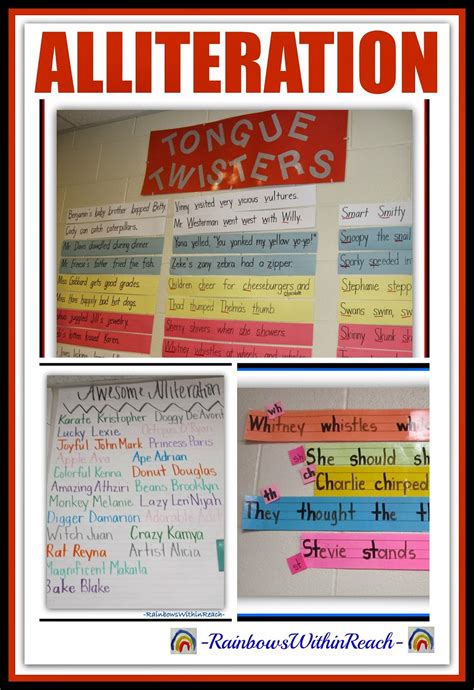 ALLITERATION
TONGUE
TWISTERS
Benjamin's baby brother bopped Betty.
Cody can catch caterpillars.
Mr. Davis dawdled during dinner.
Mr. Freese's father fried five fish.
Miss Gabbard gets good grades.
Miss Hom happily had hot dogs.
juggled Jill's jewelry.
kitten kissed Karen.
Vinny visited very vicious vultures.
Mr. Westerman went west with Willy.
Yana yelled, "You yanked my yellow yo-yo!"
Zeke's zany zebra had a zipper.
Children cheer for cheeseburgers and
chocolate
Thad thumped Thelma's thumb.
Sherry shovels when she showers.
Whitney whistles at whales while
Smart Smitty
Snoopy the snail
Sparky speeded in
Stephanie stepped
Swans swim,
Skinny Skunk
Awesome Alliteration
Karate Kristopher Doggy De'Avorit
Lucky Lexie Octopus O'Ryan
Joyful John Mark Princess Paris
Apple Ava Ape Adrian
Colorful Kenna Donut Douglas
Amazing Athziri Beans Brooklyn
Monkey Melanie Lazy LenNijah
Digger Damarion Adorable
Witch Juan Crazy Kamya
Rat Reyna Artist Alicia
Magnificent Makaila
Bake Blake
-RainbowsWithinReach-
wh
Whitney whistles while
sh
She should sh
ch
Charlie chirped
th
They thought the th
st
Stevie stands
-RainbowsWithinReach-